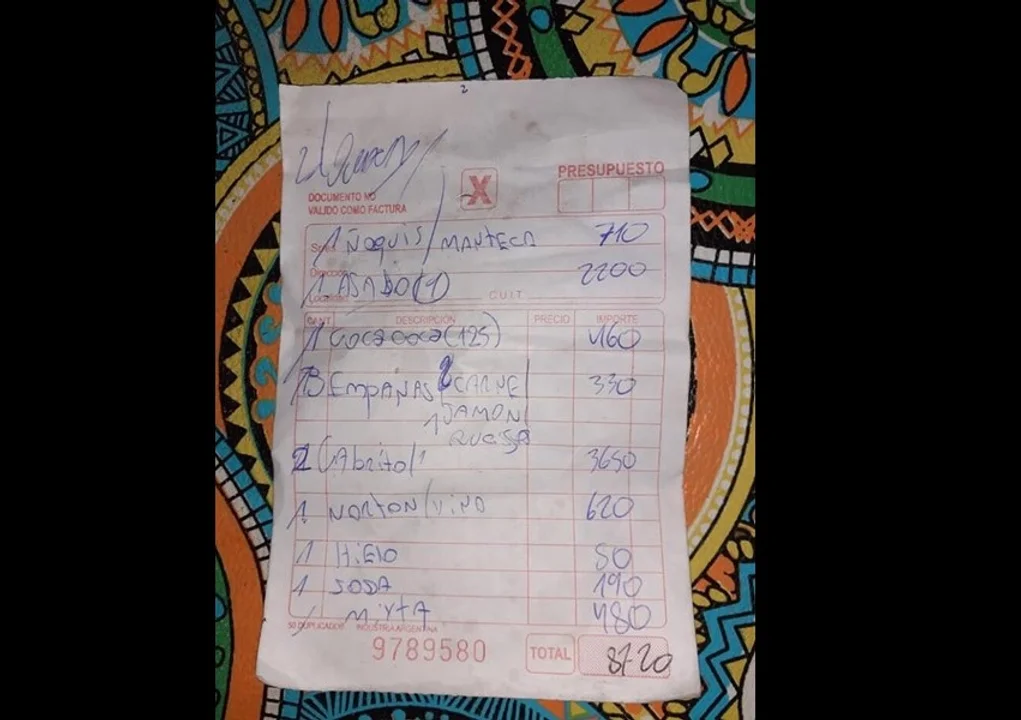 2
PRESUPUESTO
X
DOCUMENTO NO
VALIDO COMO FACTURA
1 ÑOQUIS/MANTECA 710
1 ASADO (1) 2200
C.U.I.T.
CANT. DESCRIPCIÓN PRECIO IMPORTE
1 COCA COCA (125) 460
3 EMPANAS 2 CARNE 330
1 JAMON
QUESO
2 CAbrito/1 3650
1 NORTON/VINO 620
1 HiELO 50
1 SODA 190
MiXTA 480
50 DUPLICADOS INDUSTRIA ARGENTINA
9789580
TOTAL 8720